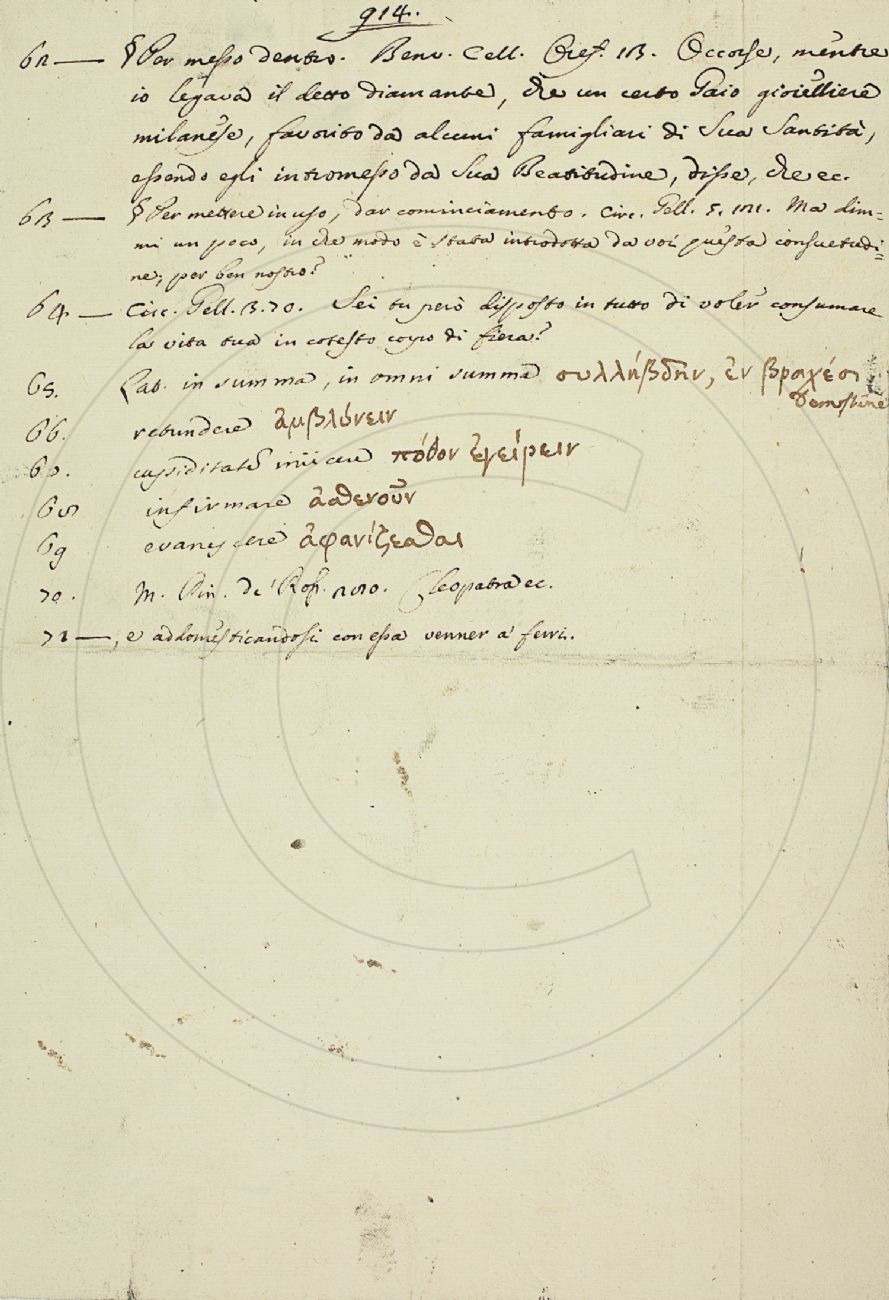 914.
62 — § Per messo dentro. Benv. Cell. Oref. 13. Occorse, mentre
io legava il detto diamante, che un certo Gaio gioielliere
milanese, favorito da alcuni famigliari di Sua Santità,
essendo egli intromesso da Sua Beatitudine, disse, che ec.
63 — § Per mettere in uso, dar cominciamento. Circ. Gell. 5. 121. Ma dim=
mi un poco, in che modo è stata introdotta da voi questa consuetudi=
ne, per ben nostro?
64. — Circ. Gell. 3. 70. Sei tu però disposto in tutto di voler consumare
la vita tua in cotesto corpo di fiera?
65. Lat. in summa, in omni summa συλλήβδην, ἐν βραχέσι
Demostene
66. retundere ἀμβλύνειν
67. cupiditatẽ iniicere πόθον ἐγείρειν
68 infirmare ἀσθενοῦν
69 evanescere ἀφανίζεσθαι
70. M. Pin. de' Ross. 270. Cleopatra ec.
71 —, e addomesticandosi con essa venner a' ferri.